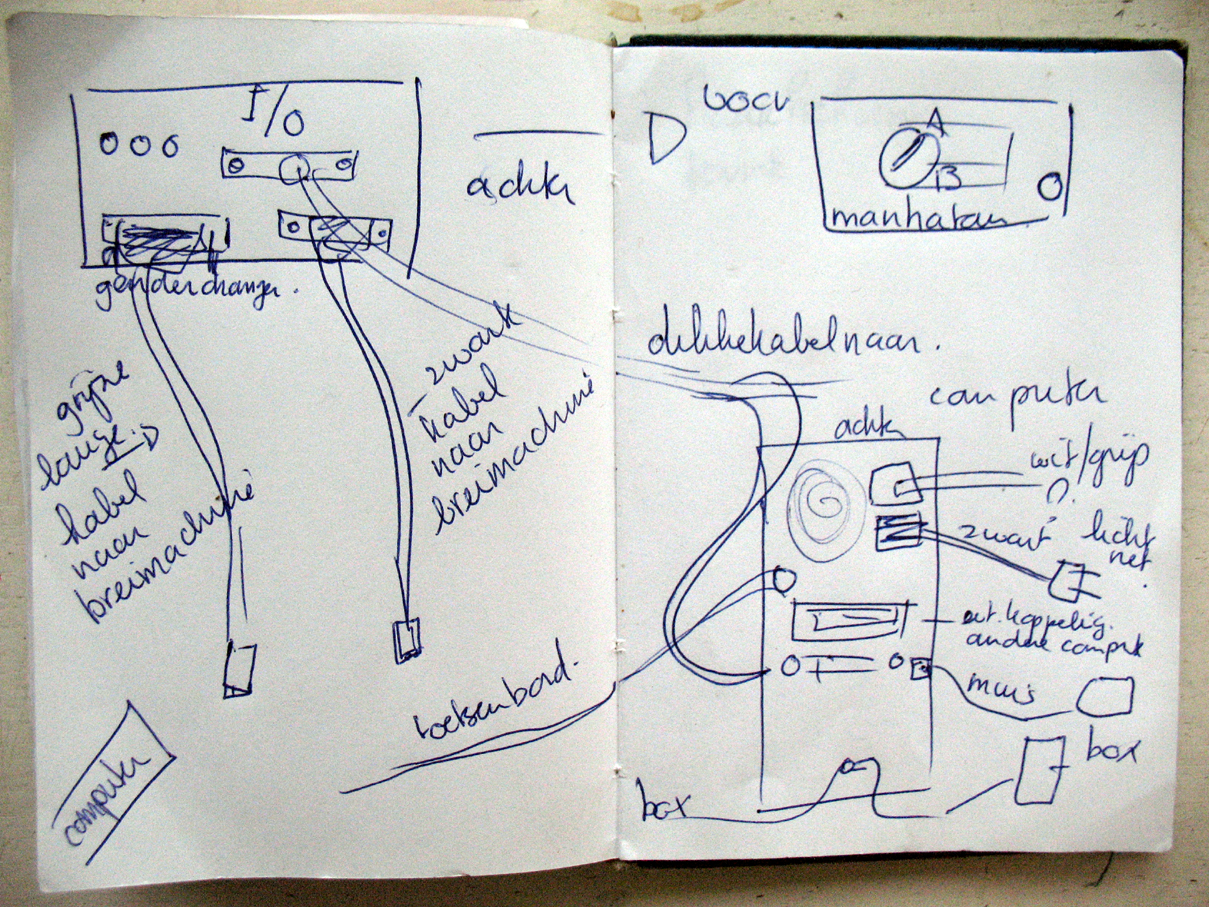 I/O
achter
genderchanger.
grijze
lange
kabel
naar
breimachine
zwarte
kabel
naar
breimachine
toetsenbord.
computer
D
A
B
manhatan
dikke kabel naar.
computer
achter
wit/grijs
?
zwart
licht
net.
andere computer
muis
box
box